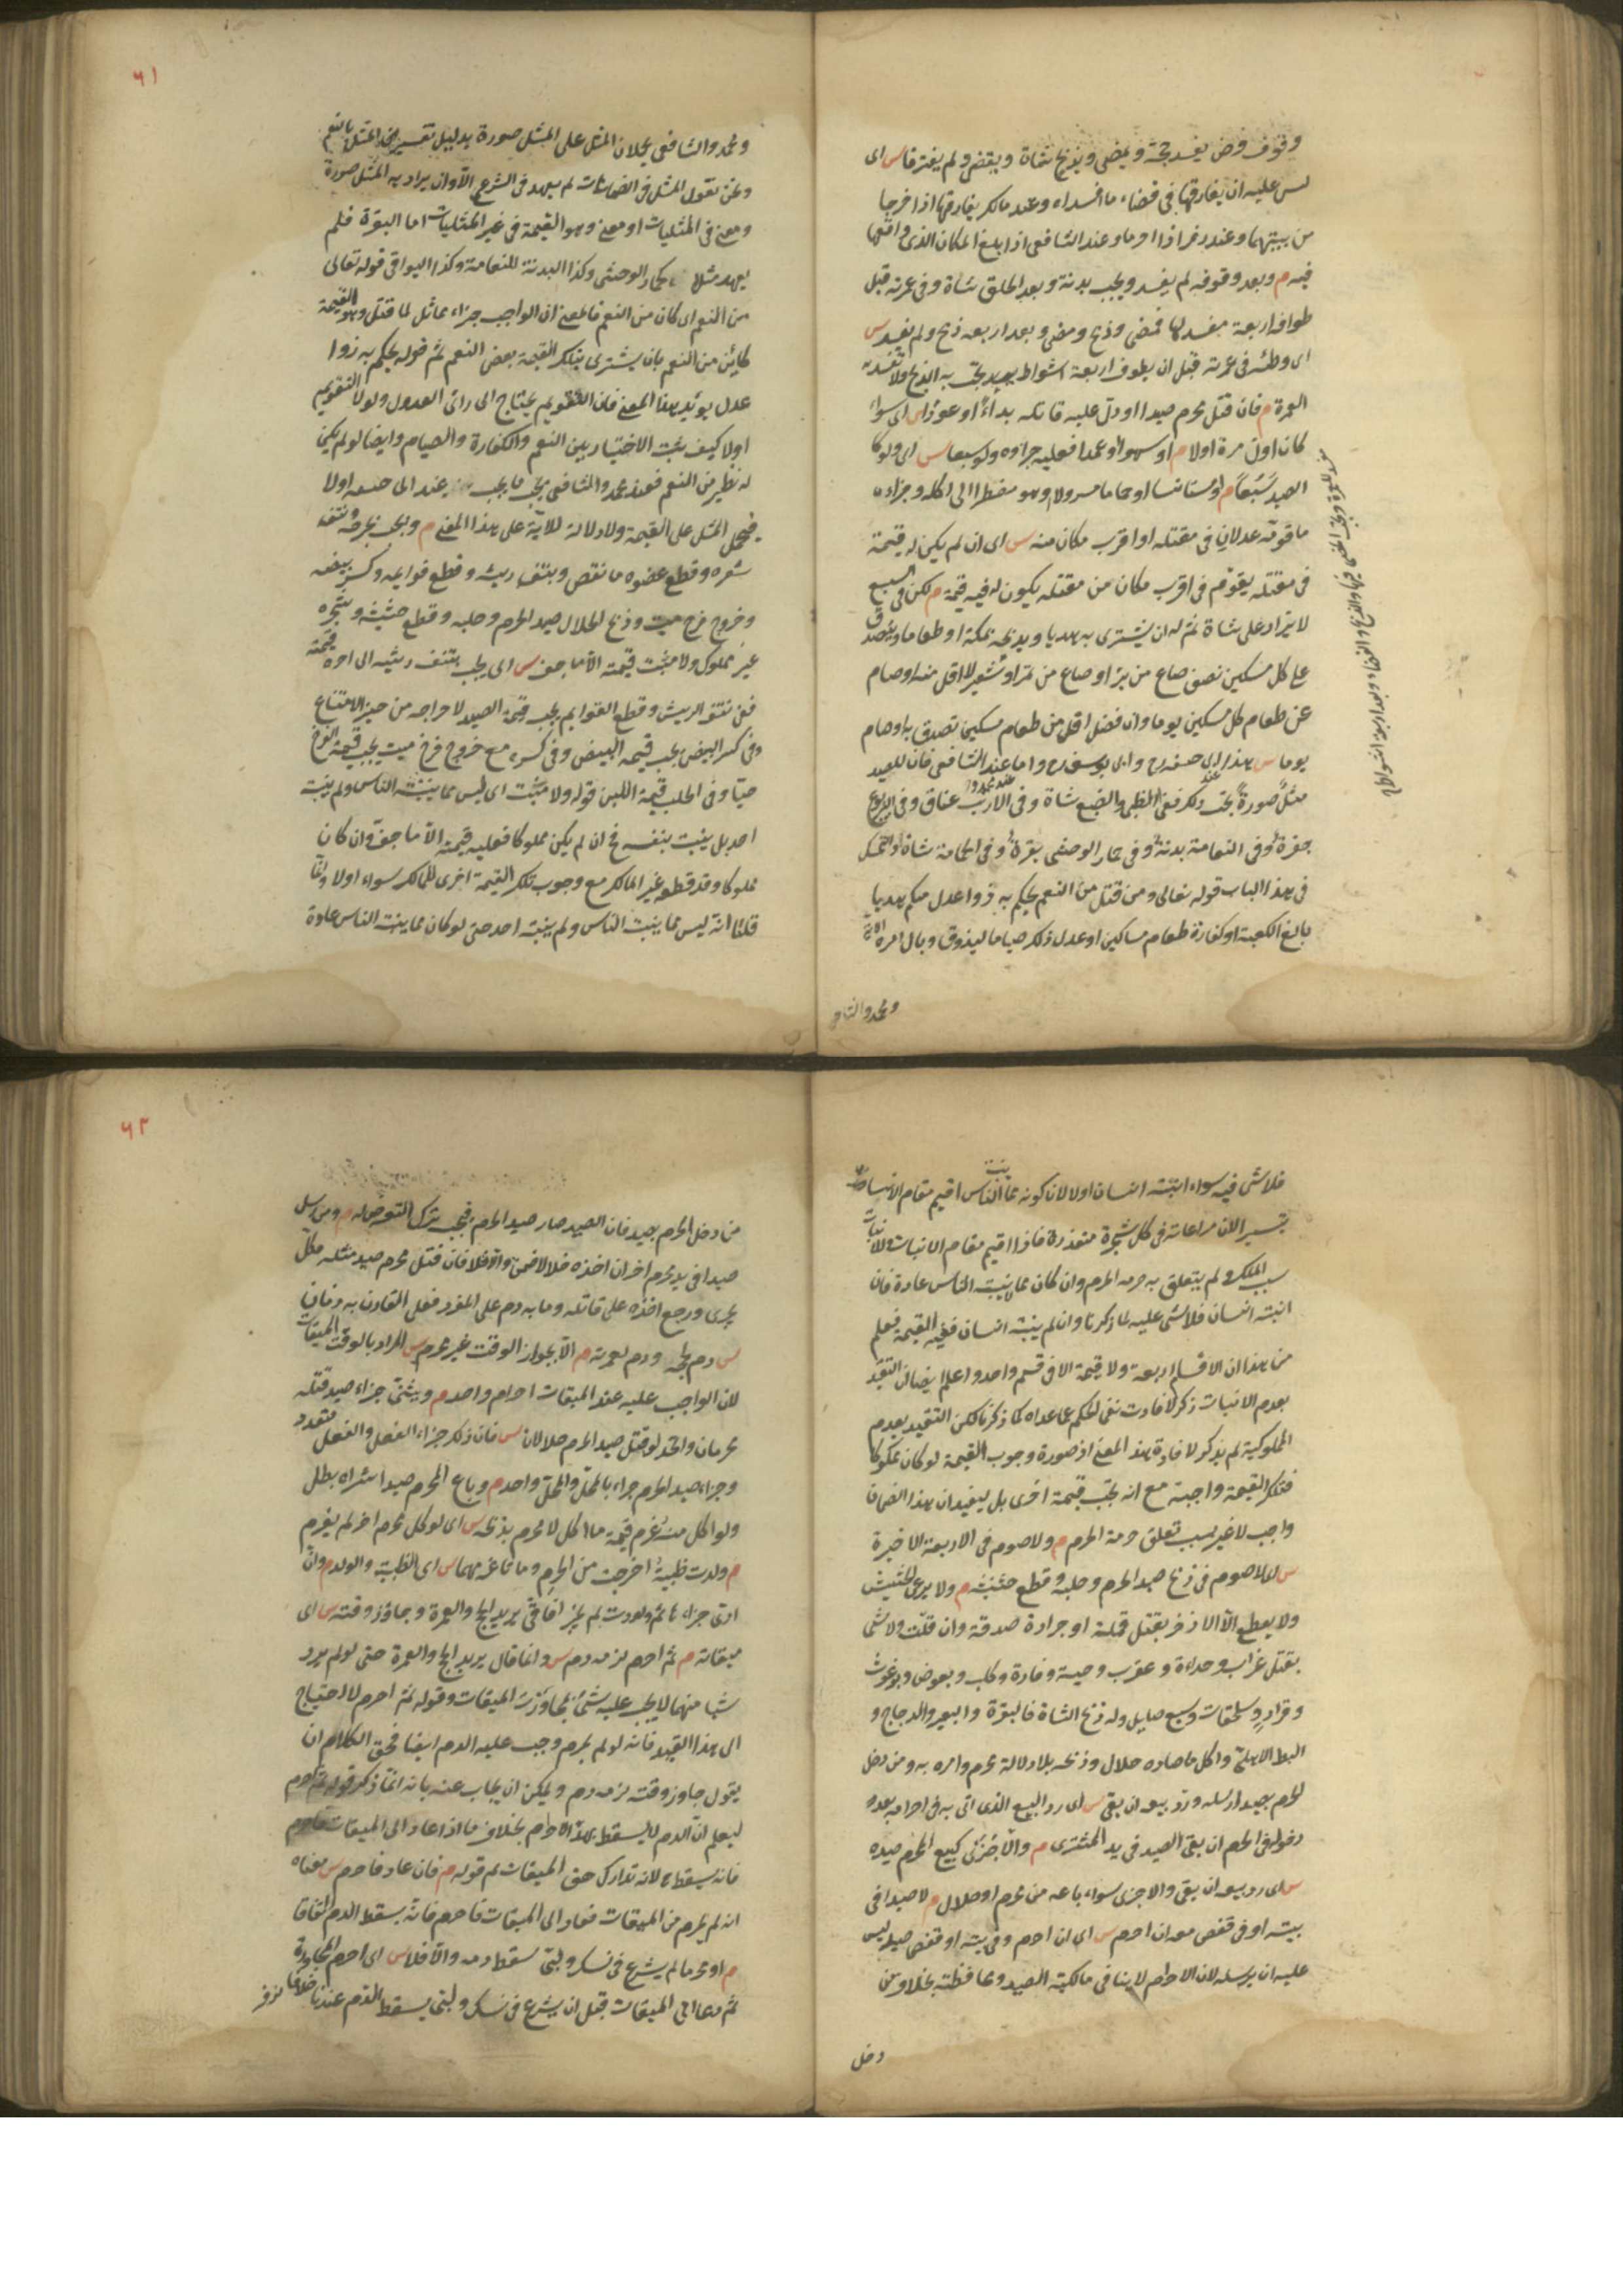 وقوف فرض يفسد حجه ويمضى ويذبح شاة ويقضى ولم يفترقا س اى
ليس عليه ان يفارقها فى قضاء ما افسداه وعند مالك يفارقها اذا خرجا
من بيتهما وعند زفر اذا احرما وعند الشافعى اذا بلغ المكان الذى واقعها
فيه م وبعد وقوفه لم يفسد ويجب بدنة وبعد الحلق شاة وفى عمرته قبل
طوافه اربعة مفسد لها فمضى وذبح وقضى وبعد اربعة ذبح ولم يفسد س
اى وطئه فى عمرته قبل ان يطوف اربعة اشواط وبعد يجب به الذبح ولا تفسد به
العمرة م فان قتل محرم صيدا او دل عليه قاتله بداءً او عودًا س اى سواء
كان اول مرة اولا م او سهوا او عمدا فعليه جزاؤه ولو سبعا س اى ولو كا
الصيد سَبُعاً م او مستانسا او حماما مسرولا وهو مضطر الى اكله وجزاءه
ما قومه عدلان فى مقتله او اقرب مكان منه س اى ان لم يكن له قيمة
فى مقتله يقوّم فى اقرب مكان من مقتله يكون له فيه قيمة م لكن فى السبع
لا يزاد على شاة ثم له ان يشترى به هديا ويذبحه بمكة او طعاما ويتصدق
على كل مسكين نصف صاع من بر او صاع من تمر او شعير لا اقل منه او صام
عن طعام كل مسكين يوما وان فضل اقل من طعام مسكين تصدق به او صام
يوما س هذا عند ابى حنيفه رح وابى يوسف رح واما عند محمد والشافعى فان للصيد
مثلٌ صورةً يجب ذلك ففى الظبى والضبع شاة وفى الارنب عناق وفى اليربوع
جفرة وفى النعامة بدنة وفى حمار الوحشى بقرة وفى الحمامة شاة والتمسك
فى هذا الباب قوله تعالى ومن قتل من النعم يحكم به ذوا عدل منكم هديا
بالغ الكعبة او كفارة طعام مساكين او عدل ذلك صياما ليذوق وبال امره الاية
ومحمد والشافعى
٦١
ومحمد والشافعى يحملان المثل على المثل صورة بدليل تفسير المثل بالنعم
ونحن نقول المثل فى الضمانات لم يعهد فى الشرع الا وان يراد به المثل صورة
ومعنى فى المثليات او معنى وهو القيمة فى غير المثليات اما البقرة فلم
يعهد مثلا لحمار الوحشى وكذا البدنة للنعامة وكذا البواقى قوله تعالى
من النعم اى كان من النعم فالمعنى ان الواجب جزاء مماثل لما قتل وهو القيمة
كائن من النعم بان يشترى بتلك القيمة بعض النعم ثم قوله يحكم به ذوا
عدل يؤيد هذا المعنى فان التقويم يحتاج الى رائ العدول ولولا التقويم
اولا كيف يثبت الاختيار بين النعم والكفارة والصيام وايضا لو لم يكن
له نظير من النعم فعند محمد والشافعى يجب ما يجب عند ابى حنيفه اولا
فيحمل المثل على القيمة ولا دلالة للاية على هذا المعنى م ويجب بجرحه ونتف
شعره وقطع عضوه ما نقص وبنتف ريشه وقطع قوائمه وكسر بيضه
وخروج فرخ ميت وذبح الحلال صيد الحرم وحلبه وقطع حشيشه وشجره
غير مملوك ولا منبت قيمته الا ما جف س اى يجب بنتف ريشه الى اخره قيمته
ففى نتف الريش وقطع القوايم يجب قيمة الصيد لاخراجه من حيز الامتناع
وفى كسر البيض يجب قيمة البيض وفى كسره مع خروج فرخ ميت يجب قيمة الفرخ
حيا وفى الحلب قيمة اللبن قوله ولا منبت اى ليس مما ينبته الناس ولم ينبته
احد بل ينبت بنفسه فح ان لم يكن مملوكا فعليه قيمته الا ما جف وان كان
مملوكا وقد قطعه غير المالك مع وجوب تلك القيمة اخرى للمالك سواء اولا وانما
قلنا انه ليس مما ينبت الناس ولم ينبته احد حتى لو كان مما ينبت الناس عادة
فلا شى فيه سواء انبته انسان اولا لان كونه مما ينبت الناس اقيم مقام الانبات
تيسيرا لان مراعاته فى كل شجرة متعذرة فاذا اقيم مقام الانبات وللانبات
سبب الملك ولم يتعلق به حرمه الحرم وان كان مما لا ينبته الناس عادة فان
انبته انسان فلا شى عليه لما ذكرنا وان لم ينبته انسان ففيه القيمة فعلم
من هذا ان الاقسام اربعة ولا قيمة الا فى قسم واحد واعلم ايضا ان التقييد
بعدم الانبات ذكر لافادت نفى الحكم عما عداه كما ذكرنا لكن التقييد بعدم
المملوكية لم يذكر لافادة هذا المعنى اذ صورة وجوب القيمة لو كان مملوكا
فتلك القيمة واجبة مع انه يجب قيمة اخرى بل ليفيد ان هذا الضمان
واجب لا غير بسبب تعلق حرمة الحرم م ولا صوم فى الاربعة الاخيرة
س اى لا صوم فى ذبح صيد الحرم وحلبه وقطع حشيشه م ولا يرعى الحشيش
ولا يقطع الا الاذخر بقتل قملة او جرادة صدقة وان قلّت ولا شى
بقتل غراب وحداءة وعقرب وحية وفارة وكلب وبعوض وبرغوث
وقراد وسلحفات وسبع صايل وله ذبح الشاة فالبقرة والبعير والدجاج و
البط الاهلى واكل ما صاده حلال وذبحه بلا دلالة محرم وامره به ومن دخل
الحرم بصيد ارسله ورد بيعه ان بقى س اى رد البيع الذى اتى به فى احرامه بعد
دخوله فى الحرم ان بقى الصيد فى يد المشترى م والا جزى كبيع المحرم صيده
س اى رد بيعه ان بقى والا جزى سواء باعه من محرم او حلال م لا صيدا فى
بيته او فى قفص معه ان احرم س اى ان احرم وفى بيته او قفصه صيد ليس
عليه ان يرسله لان الاحرام لا ينافى مالكية الصيد ومحافظته بخلاف من
دخل
٦٢
من دخل الحرم بصيد فان الصيد صار صيد الحرم فيجب ترك التعرض له م ومن ارسل
صيدا فى يد محرم اخر ان اخذه حلالا ضمن والا فلا فان قتل محرم صيد مثله فكل
يجزى ورجع اخذه على قاتله وما به دم على المفرد فعلى القارن به دمان
س دم لحجه ودم لعمرته م الا بجواز الوقت غير محرم س المراد بالوقت الميقات
لان الواجب عليه عند الميقات احرام واحد م ويثنى جزاء صيد قتله
محرمان واتحد لو قتل صيد الحرم حلالان س فان ذلك جزاء الفعل والفعل متعدد
وجزاء صيد الحرم جزاء بالمحل والمحل واحد م وباع المحرم صيدا اشراه بطل
ولو اكل منه غرم قيمة ما اكل لا محرم بذبحه س اى لو اكل محرم اخر لم يغرم
م ولدت ظبية اخرجت من الحرم وماتا غرمهما س اى الظبية والولد م وان
ادى جزاءها ثم ولدت لم يجزه افاقى يريد الحج والعمرة وجاوز وقته س اى
ميقاته م ثم احرم لزمه دم س وانما قال يريد الحج والعمرة حتى لو لم يرد
شيا منهما لا يجب عليه شئ بمجاوزت الميقات وقوله ثم احرم لا احتياج
الى هذا القيد فانه لو لم يحرم وجب عليه الدم ايضا فحق الكلام ان
يقول جاوز وقته لزمه دم ويمكن ان يجاب عنه بانه انما ذكر قوله ثم احرم
ليعلم ان الدم لا يسقط بهذا الاحرام بخلاف ما اذا عاد الى الميقات فاحرم
فانه يسقط لانه تدارك حق الميقات ثم قوله م فان عاد فاحرم س معناه
انه لم يحرم من الميقات فعاد الى الميقات فاحرم فانه يسقط الدم اتفاقا
م او محرما لم يشرع فى نسك ولبى سقط دمه والا فلا س اى احرم بعد المجاوزة
ثم عاد الى الميقات قبل ان يشرع فى نسك ولبى يسقط الدم عندنا خلافا لزفر